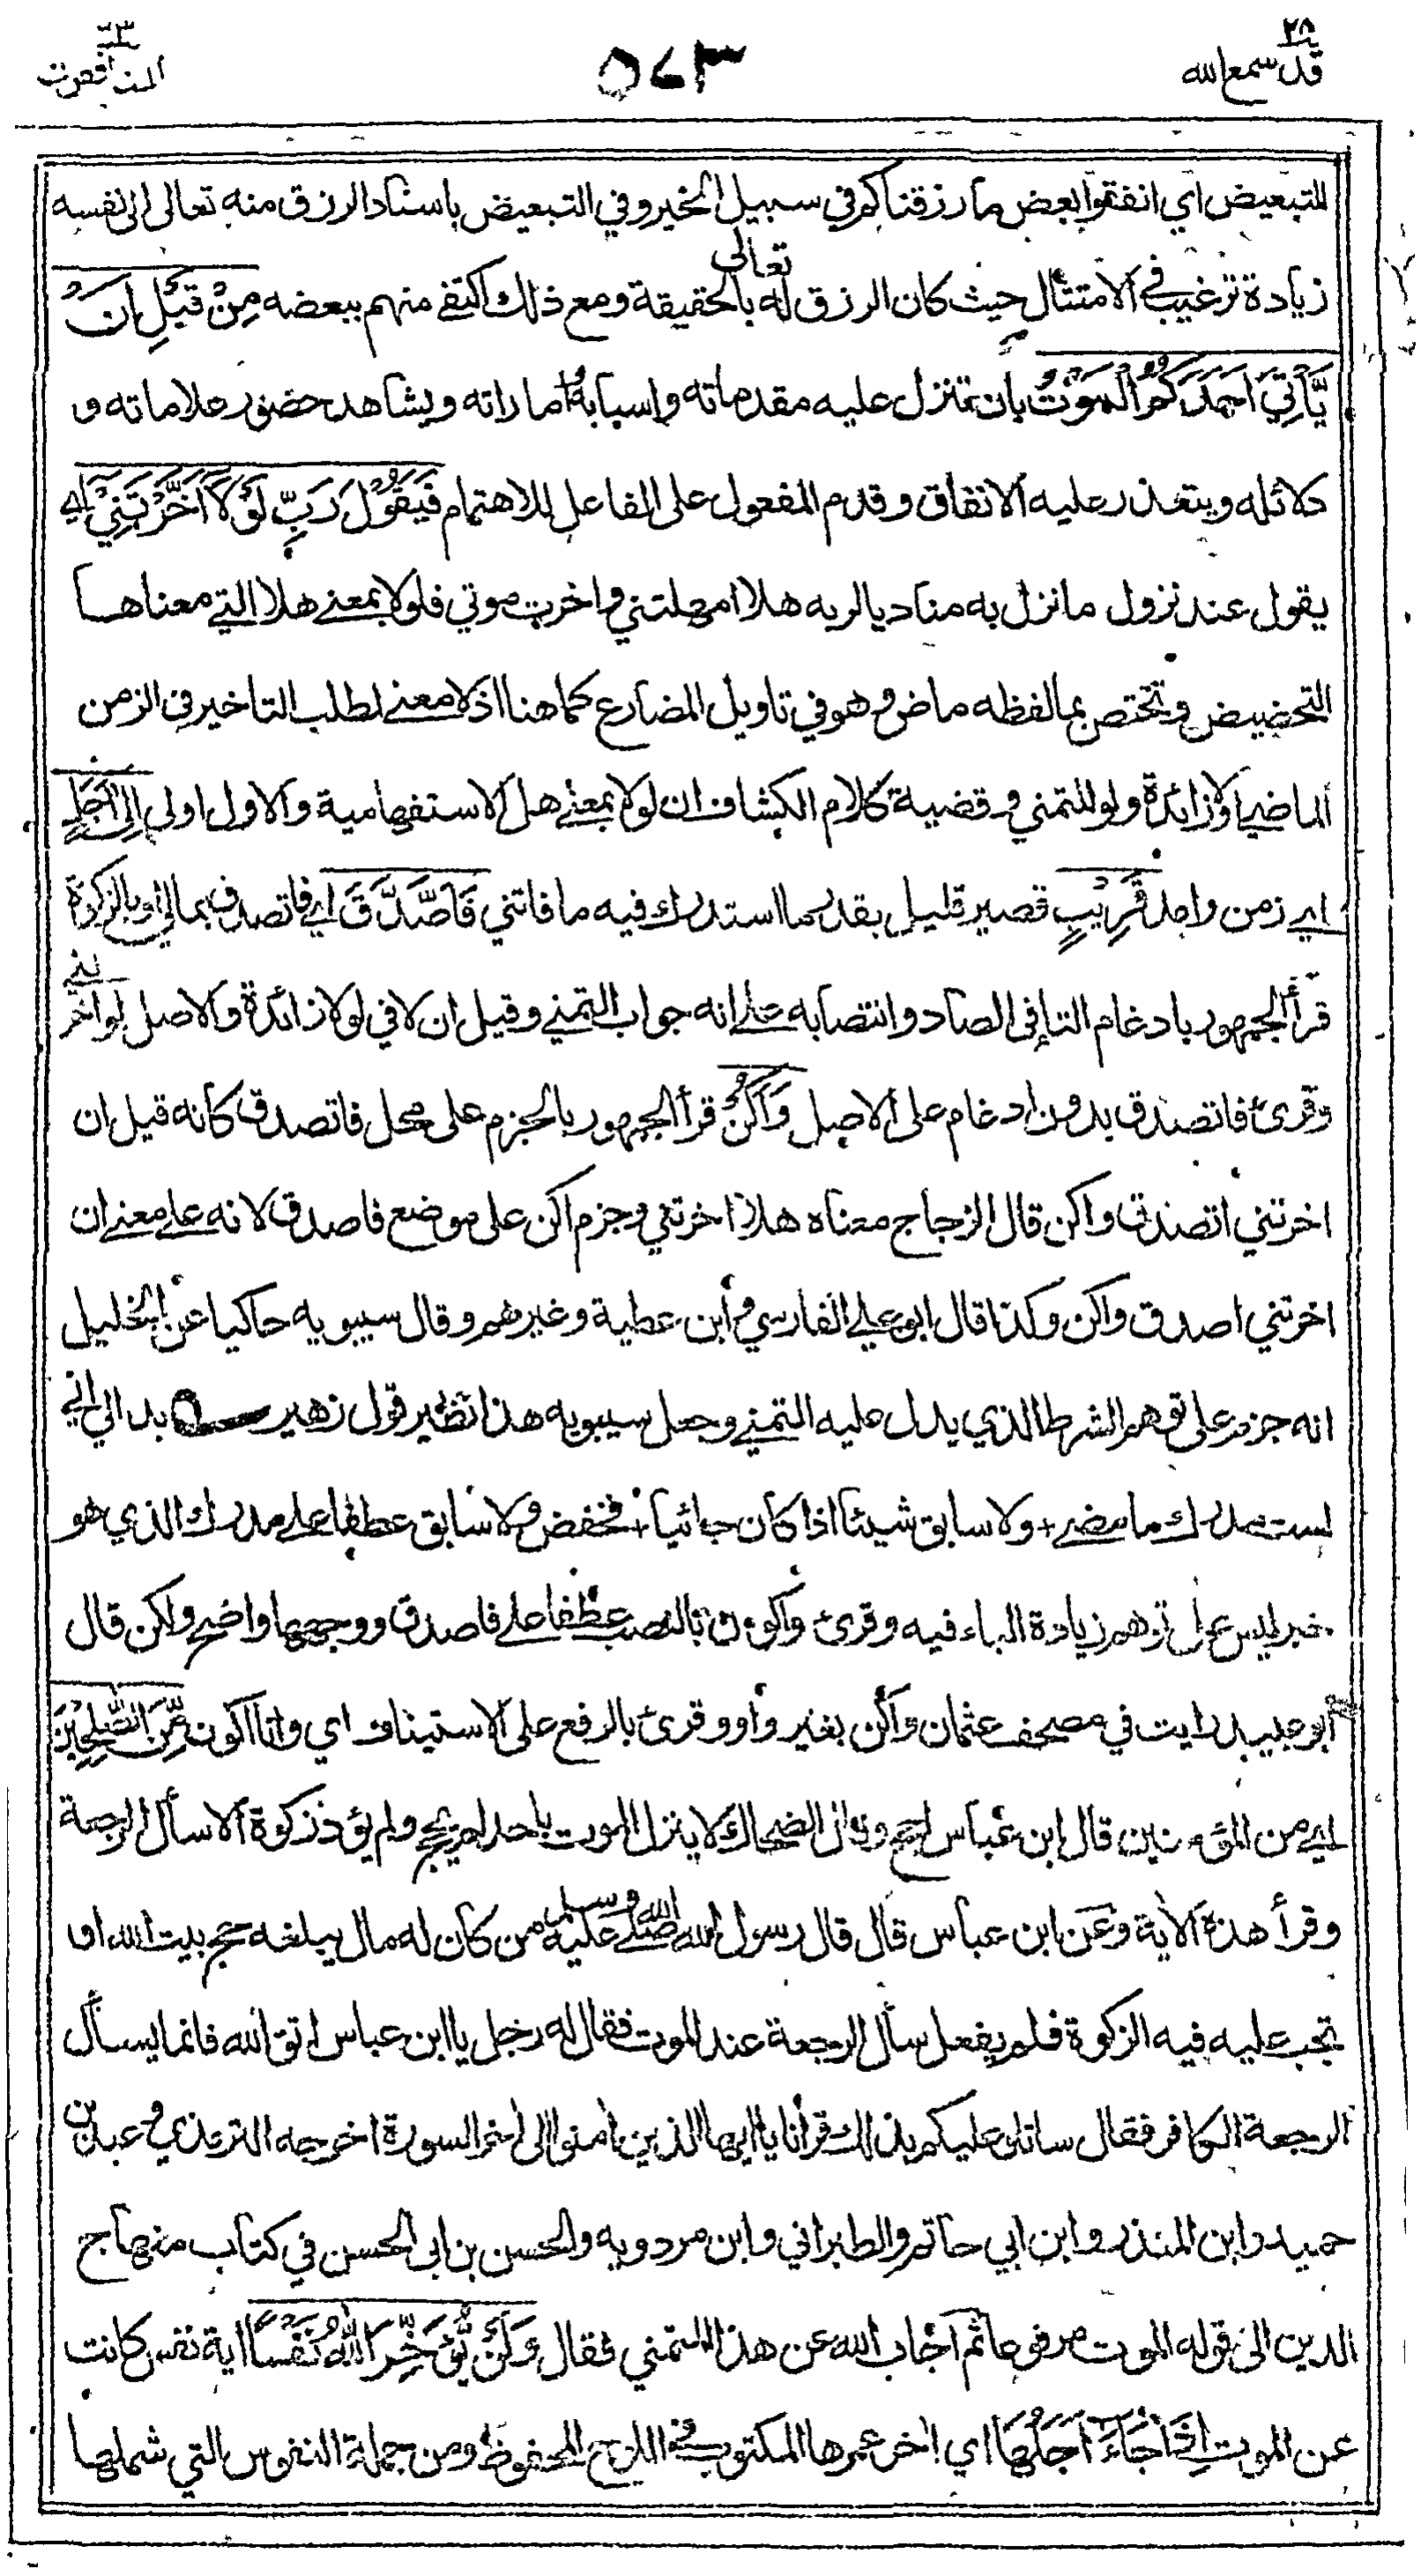 ٢٨
قد سمع الله
٥٧٣
٦٣
المنافقون
للتبعيض اي انفقوا بعض ما رزقناكم في سبيل الخير وفي التبعيض باسناد الرزق منه تعالى الى نفسه
زيادة ترغيب في الامتثال حيث كان الرزق له تعالى بالحقيقة ومع ذلك اكتفى منهم ببعضه مِنْ قَبْلِ اَنْ
يَّاْتِيَ اَحَدَكُمُ الْمَوْتُ بان تنزل عليه مقدماته واسبابه واماراته ويشاهد حضور علاماته و
دلائله ويتعذر عليه الانفاق وقدم المفعول على الفاعل للاهتمام فَيَقُوْلَ رَبِّ لَوْلَآ اَخَّرْتَنِيْٓ اي
يقول عند نزول ما نزل به مناديا لربه هلا امهلتني واخرت موتي فلولا بمعنى هلا التي معناها
التحضيض وتختص بما لفظه ماض وهو في تاويل المضارع كما هنا اذ لا معنى لطلب التاخير في الزمن
الماضي او لا زائدة ولو للتمني وقضية كلام الكشاف ان لولا بمعنى هل الاستفهامية والاول اولى اِلٰى اَجَلٍ
اي زمن واجل قَرِيْبٍ قصير قليل بقدر ما استدرك فيه ما فاتني فَاَصَّدَّقَ اي فاتصدق بمالي او بالزكوة
قرأ الجمهور بادغام التاء في الصاد وانتصابه على انه جواب التمني وقيل ان لا في لولا زائدة والاصل لو اخرتني
وقرئ فاتصدق بدون ادغام على الاصل وَاَكُنْ قرأ الجمهور بالجزم على محل فاتصدق كانه قيل ان
اخرتني اتصدق واكن قال الزجاج معناه هلا اخرتني وجزم اكن على موضع فاصدق لانه على معنى ان
اخرتني اصدق واكن وكذا قال ابو علي الفارسي وابن عطية وغيرهم وقال سيبويه حاكيا عن الخليل
انه جزم على توهم الشرط الذي يدل عليه التمني وجعل سيبويه هذا نظير قول زهير بدا لي اني
لست مدرك ما مضى + ولا سابق شيئا اذا كان جائيا + فخفض ولا سابق عطفا على مدرك الذي هو
خبر ليس على توهم زيادة الباء فيه وقرئ واكون بالنصب عطفا على فاصدق ووجهها واضح ولكن قال
ابو عبيد رايت في مصحف عثمان واكن بغير واو وقرئ بالرفع على الاستيناف اي وانا اكون مِّنَ الصّٰلِحِيْنَ
اي من المؤمنين قال ابن عباس احج وقال الضحاك لا ينزل الموت باحد لم يحج ولم يؤد زكوة الا سأل الرجعة
وقرأ هذه الاية وعن ابن عباس قال قال رسول الله صلى الله عليه وسلم من كان له مال يبلغه حج بيت الله او
تجب عليه فيه الزكوة فلم يفعل سأل الرجعة عند الموت فقال له رجل يا ابن عباس اتق الله فانما يسأل
الرجعة الكافر فقال ساتلو عليكم بذلك قرأنا يا ايها الذين امنوا الى اخر السورة اخرجه الترمذي وعبد بن
حميد وابن المنذر وابن ابي حاتم والطبراني وابن مردويه والحسن بن ابي الحسن في كتاب منهاج
الدين الى قوله الموت مرفوعا ثم اجاب الله عن هذا التمني فقال وَلَنْ يُّؤَخِّرَ اللّٰهُ نَفْسًا اية نفس كانت
عن الموت اِذَا جَآءَ اَجَلُهَا اي اخر عمرها المكتوب في اللوح المحفوظ ومن جملة النفوس التي شملها